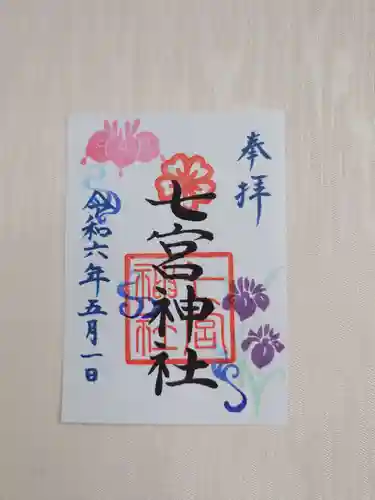 奉拝
七宮神社
七宮神社
令和六年五月一日